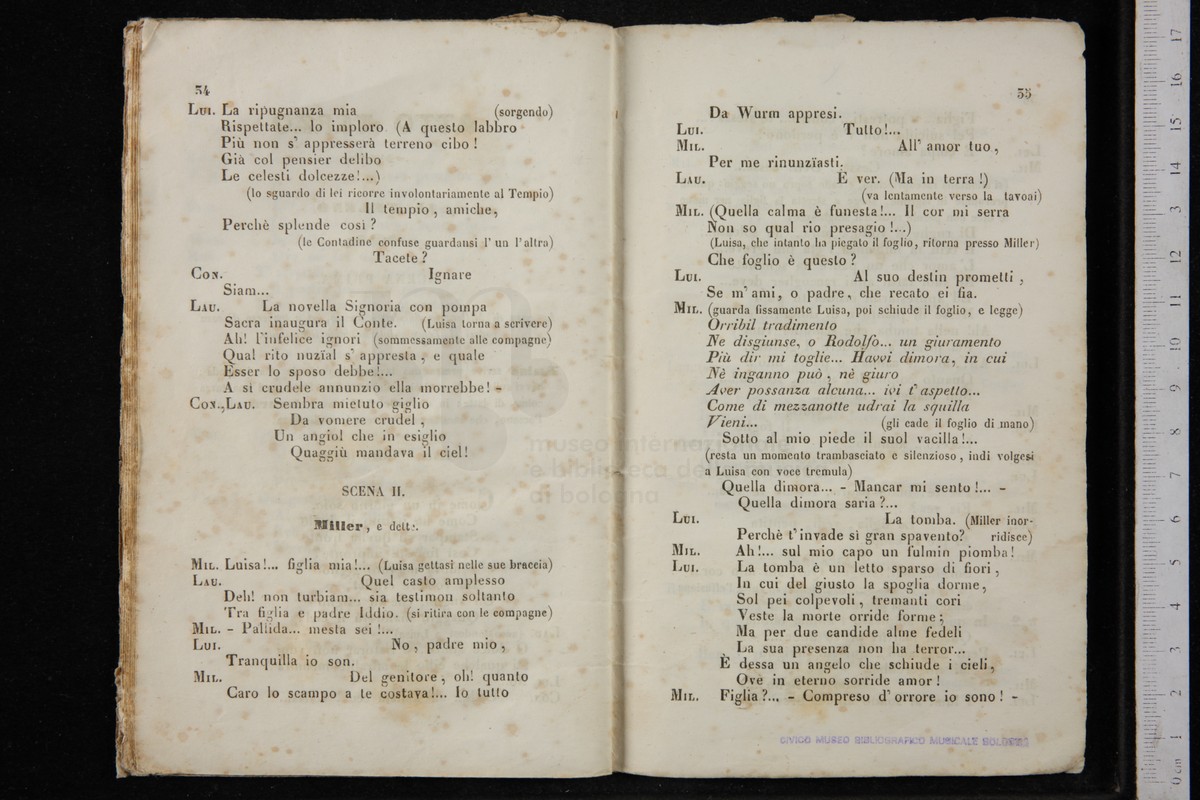 34
LUI. La ripugnanza mia (sorgendo)
Rispettate... lo imploro. (A questo labbro
Più non s' appresserà terreno cibo !
Già col pensier delibo
Le celesti dolcezze!...)
(lo sguardo di lei ricorre involontariamente al Tempio)
Il tempio, amiche,
Perchè splende così ?
(le Contadine confuse guardansi l' un l' altra)
Tacete ?
CON. Ignare
Siam...
LAU. La novella Signoria con pompa
Sacra inaugura il Conte. (Luisa torna a scrivere)
Ah! l'infelice ignori (sommessamente alle compagne)
Qual rito nuzïal s' appresta, e quale
Esser lo sposo debbe!...
A sì crudele annunzio ella morrebbe! -
CON., LAU. Sembra mietuto giglio
Da vomere crudel,
Un angiol che in esiglio
Quaggiù mandava il ciel!
SCENA II.
Miller, e dette.
MIL. Luisa!... figlia mia!... (Luisa gettasi nelle sue braccia)
LAU. Quel casto amplesso
Deh! non turbiam... sia testimon soltanto
Tra figlia e padre Iddio. (si ritira con le compagne)
MIL. - Pallida... mesta sei !...
LUI. No, padre mio,
Tranquilla io son.
MIL. Del genitore, oh! quanto
Caro lo scampo a te costava!... Io tutto
35
Da Wurm appresi.
LUI. Tutto!...
MIL. All' amor tuo,
Per me rinunzïasti.
LAU. È ver. (Ma in terra !)
(va lentamente verso la tavoai)
MIL. (Quella calma è funesta!... Il cor mi serra
Non so qual rio presagio !...)
(Luisa, che intanto ha piegato il foglio, ritorna presso Miller)
Che foglio è questo ?
LUI. Al suo destin prometti,
Se m' ami, o padre, che recato ei fia.
MIL. (guarda fissamente Luisa, poi schiude il foglio, e legge)
Orribil tradimento
Ne disgiunse, o Rodolfo... un giuramento
Più dir mi toglie... Havvi dimora, in cui
Nè inganno può, nè giuro
Aver possanza alcuna... ivi t' aspetto...
Come di mezzanotte udrai la squilla
Vieni... (gli cade il foglio di mano)
Sotto al mio piede il suol vacilla!...
(resta un momento trambasciato e silenzioso, indi volgesi
a Luisa con voce tremula)
Quella dimora... - Mancar mi sento!... -
Quella dimora saria ?...
LUI. La tomba. (Miller inor-
Perchè t' invade sì gran spavento? ridisce)
MIL. Ah!... sul mio capo un fulmin piomba!
LUI. La tomba è un letto sparso di fiori,
In cui del giusto la spoglia dorme,
Sol pei colpevoli, tremanti cori
Veste la morte orride forme;
Ma per due candide alme fedeli
La sua presenza non ha terror...
È dessa un angelo che schiude i cieli,
Ove in eterno sorride amor !
MIL. Figlia ?... - Compreso d' orrore io sono ! -
CIVICO MUSEO BIBLIOGRAFICO MUSICALE BOLOGNA
museo internazionale
e biblioteca de
di bologna
0 cm 1 2 3 4 5 6 7 8 9 10 11 12 13 14 15 16 17